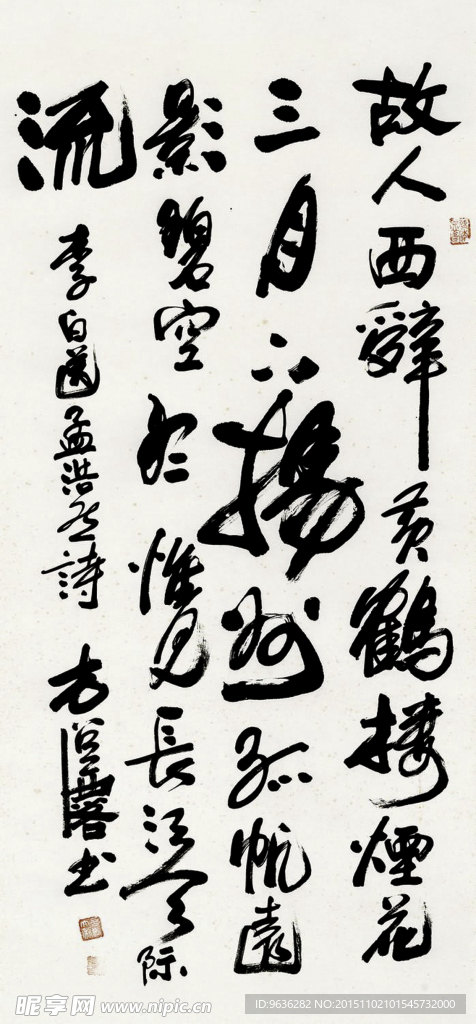 故人西辭黄鶴樓煙花
三月下揚州孤帆遠
影碧空尽惟見長江天際
流
李白送孟浩然詩 方書
昵享网 www.nipic.cn
ID:9636282 NO:20151102101545732000